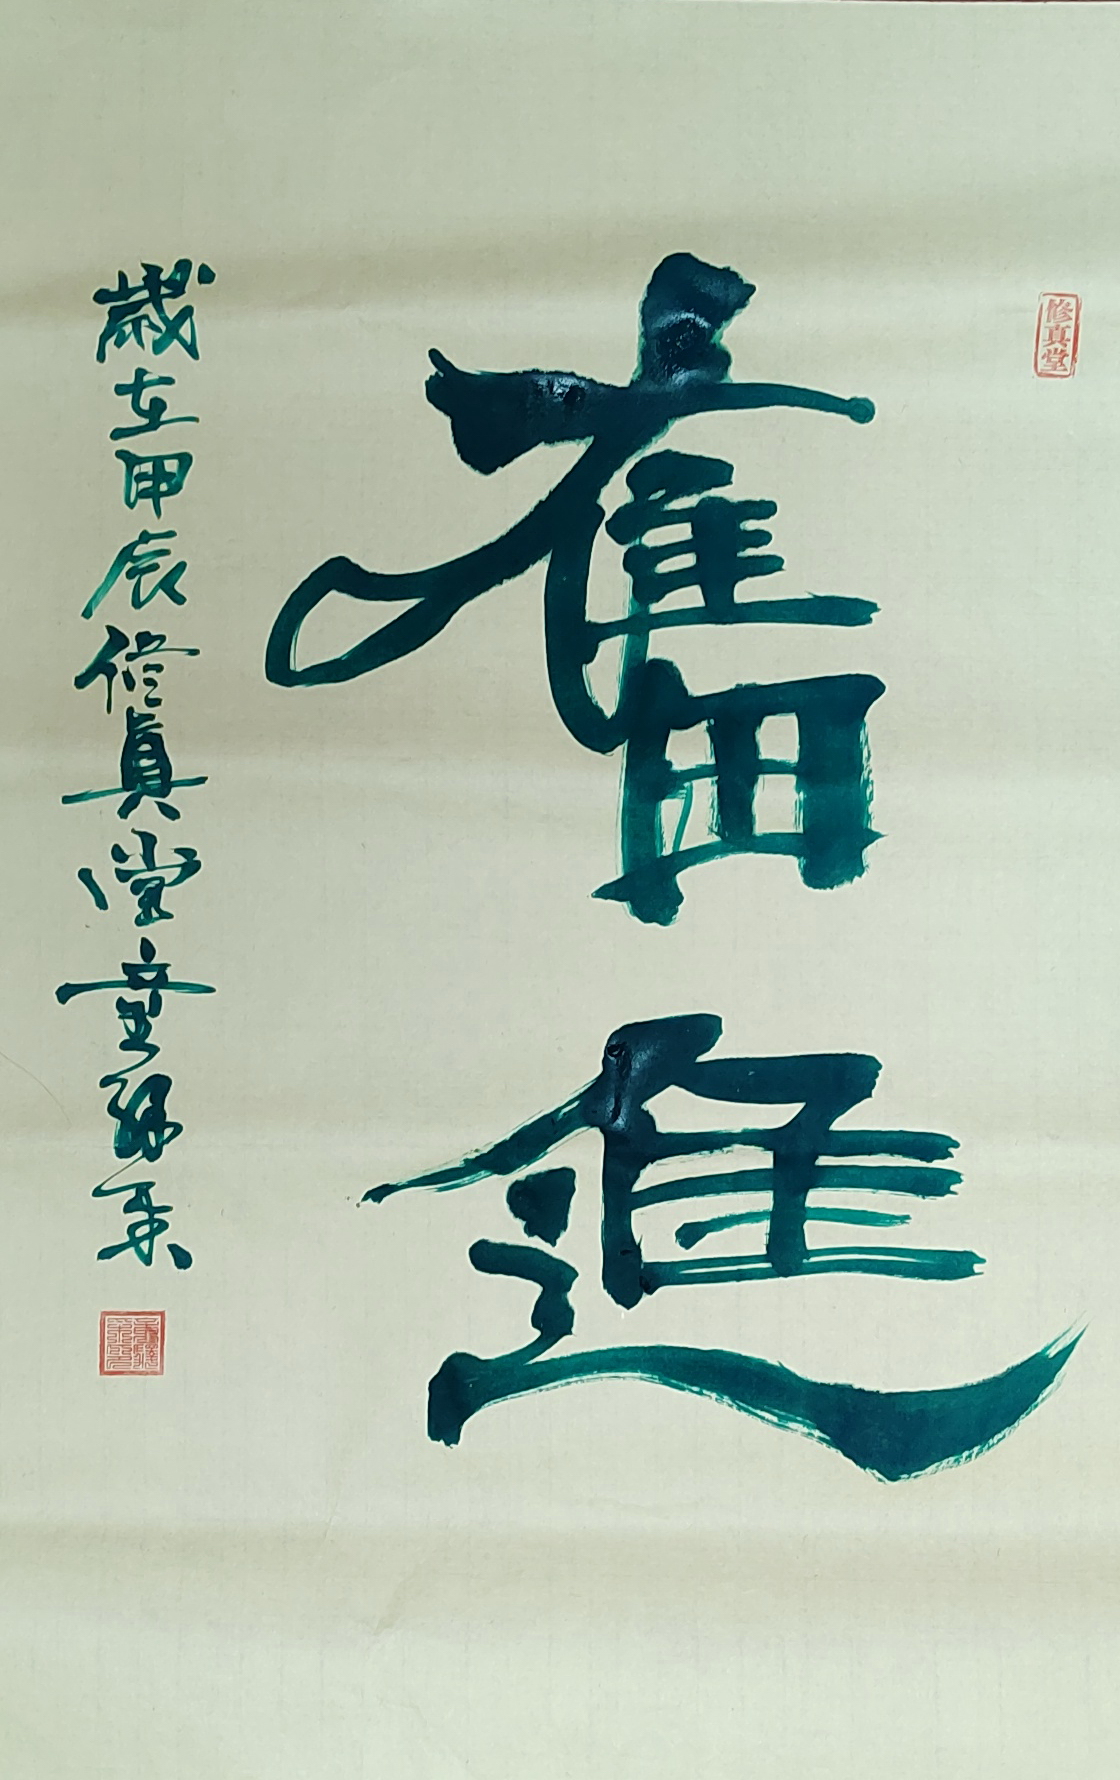 修真堂
奮進
歲在甲辰修真堂童